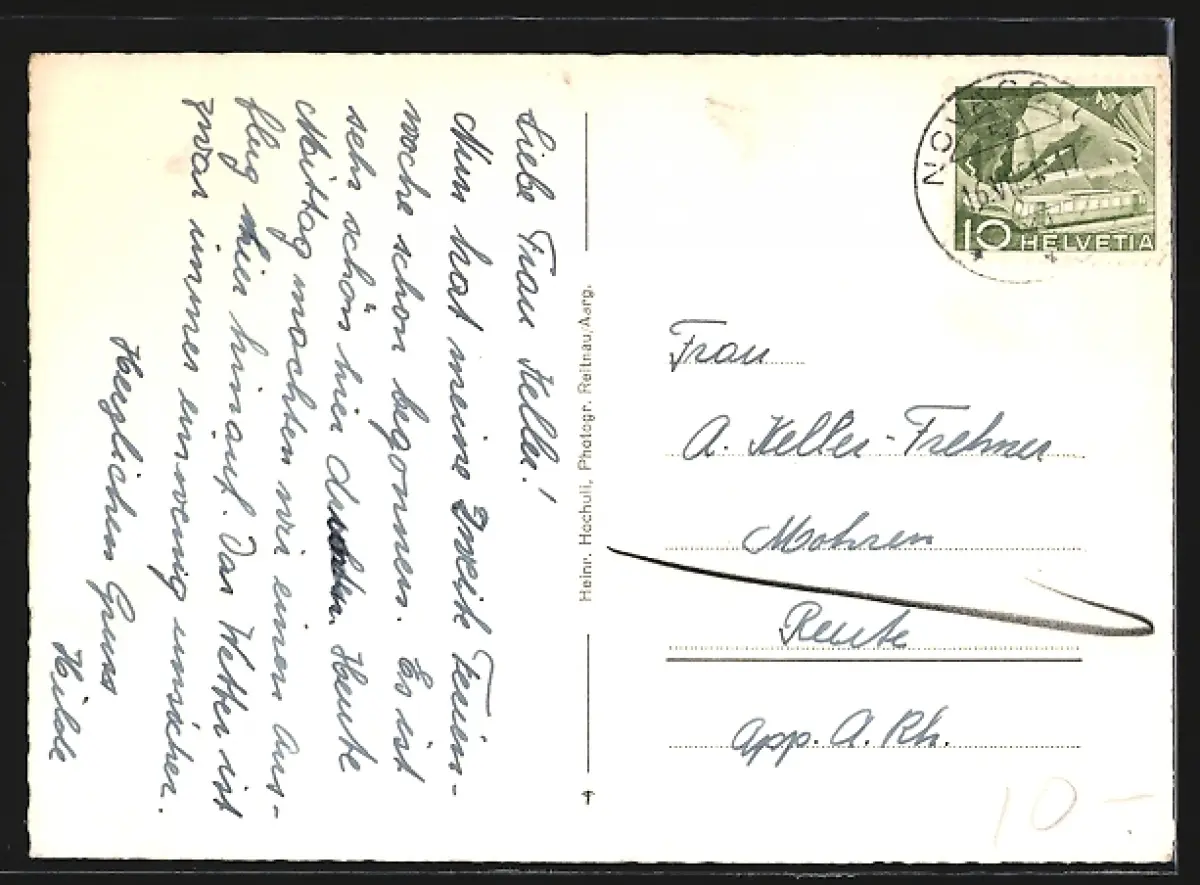 Liebe Frau Keller!
Nun hat meine zweite Ferien-
woche schon begonnen. Es ist
sehr schön hier Heute
Mittag machten wir einen Aus-
flug hier hinauf. Das Wetter ist
zwar immer ein wenig unsicher.
Herzlichen Gruss
Hilde
Heinr. Hochuli, Photogr. Reitnau/Aarg.
10 HELVETIA
Frau
A. Keller-Frehner
Mohren
Reute
App. A. Rh.
10.-